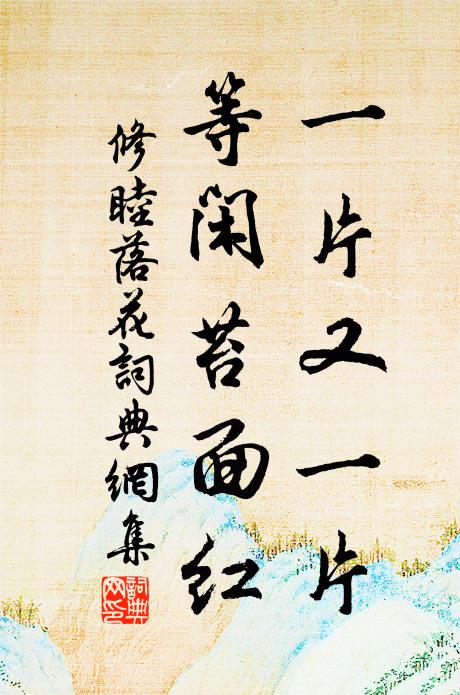 一片又一片
等閑苔面红
修睦落花詞典網集
詞典